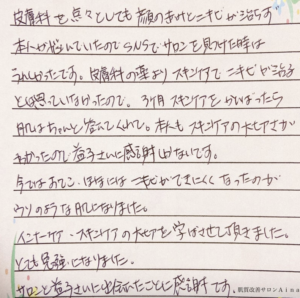 皮膚科を点々としても顔の赤みとニキビが治らず
本人が悩んでいたのでSNSでサロンを見つけた時は
うれしかったです。皮膚科の薬よりスキンケアでニキビが治る
とは思っていなかったので。3ヶ月スキンケアをがんばったら
肌はちゃんと答えてくれて。本人もスキンケアの大切さが
わかったので益子さんに感謝しかないです。
今ではおでこ・ほほにはニキビができにくくなったのが
ウソのような肌になりました。
インナーケア・スキンケアの大切を学ばさせて頂きました。
とても勉強になりました。
サロンと益子さんに出会えたことに感謝です。
肌質改善サロンAina